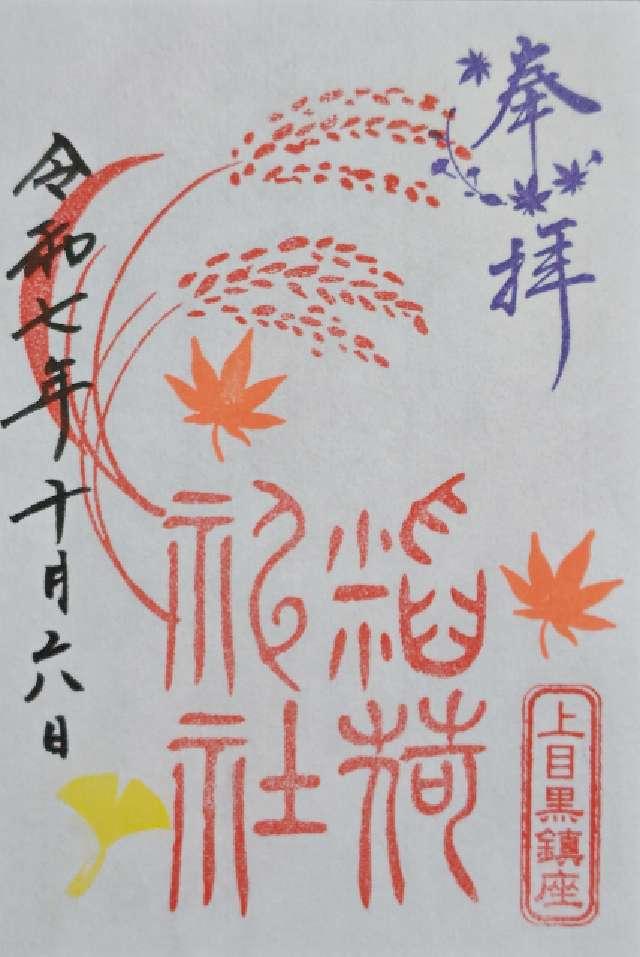 奉拝
稲荷
神社
上目黒鎮座
令和七年十月六日